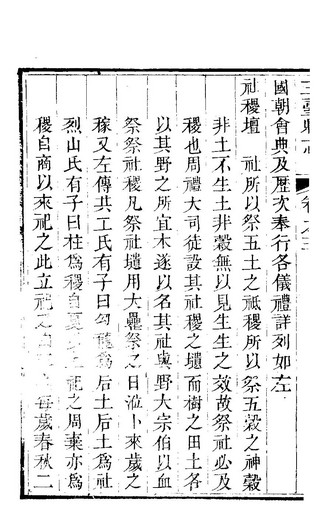 國朝會典及歷次奉行各儀禮詳列如左
社稷壇 社所以祭五土之祇稷所以祭五穀之神穀
非土不生土非穀無以見生生之效故祭社必及
稷也周禮大司徒設其社稷之壝而樹之田土各
以其野之所宜木遂以名其社與野大宗伯以血
祭祭社稷凡祭社壝用大罍祭之日涖卜來歲之
稼又左傳共工氏有子曰勾龍為后土后土為社
烈山氏有子曰柱為稷自夏以上祀之周棄亦為
稷自商以來祀之此立祀之 每歲春秋二